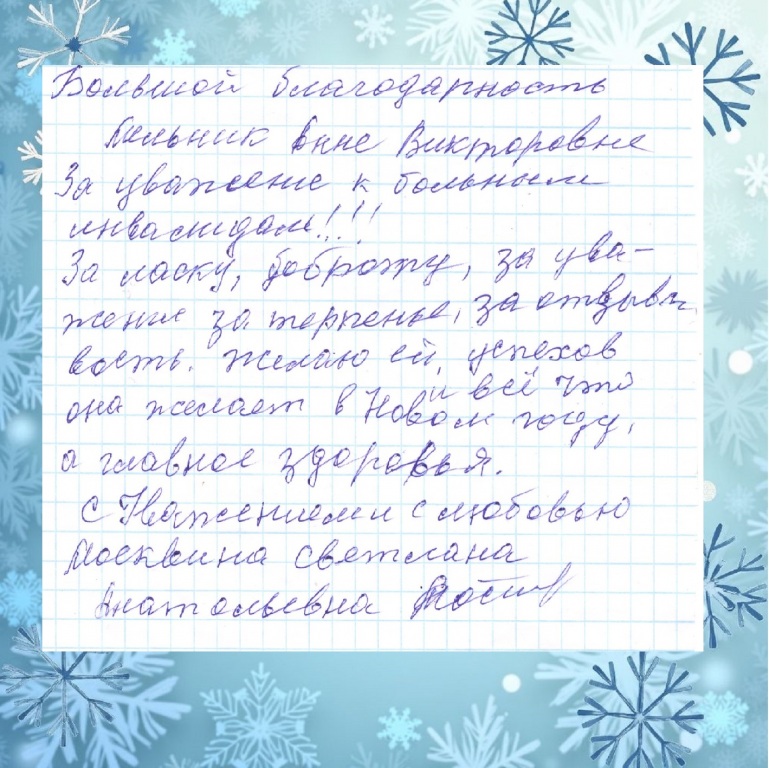 Большой благодарность
Пильник Анне Викторовне
За уважение к больным
инвалидам!!!
За ласку, доброту, за ува-
жение за терпенье, за отзывч
вость. Желаю ей, успехов
и всё что
она желает в Новом году,
а главное здоровья.
С Уважением и с любовью
Москвина Светлана
Анатольевна